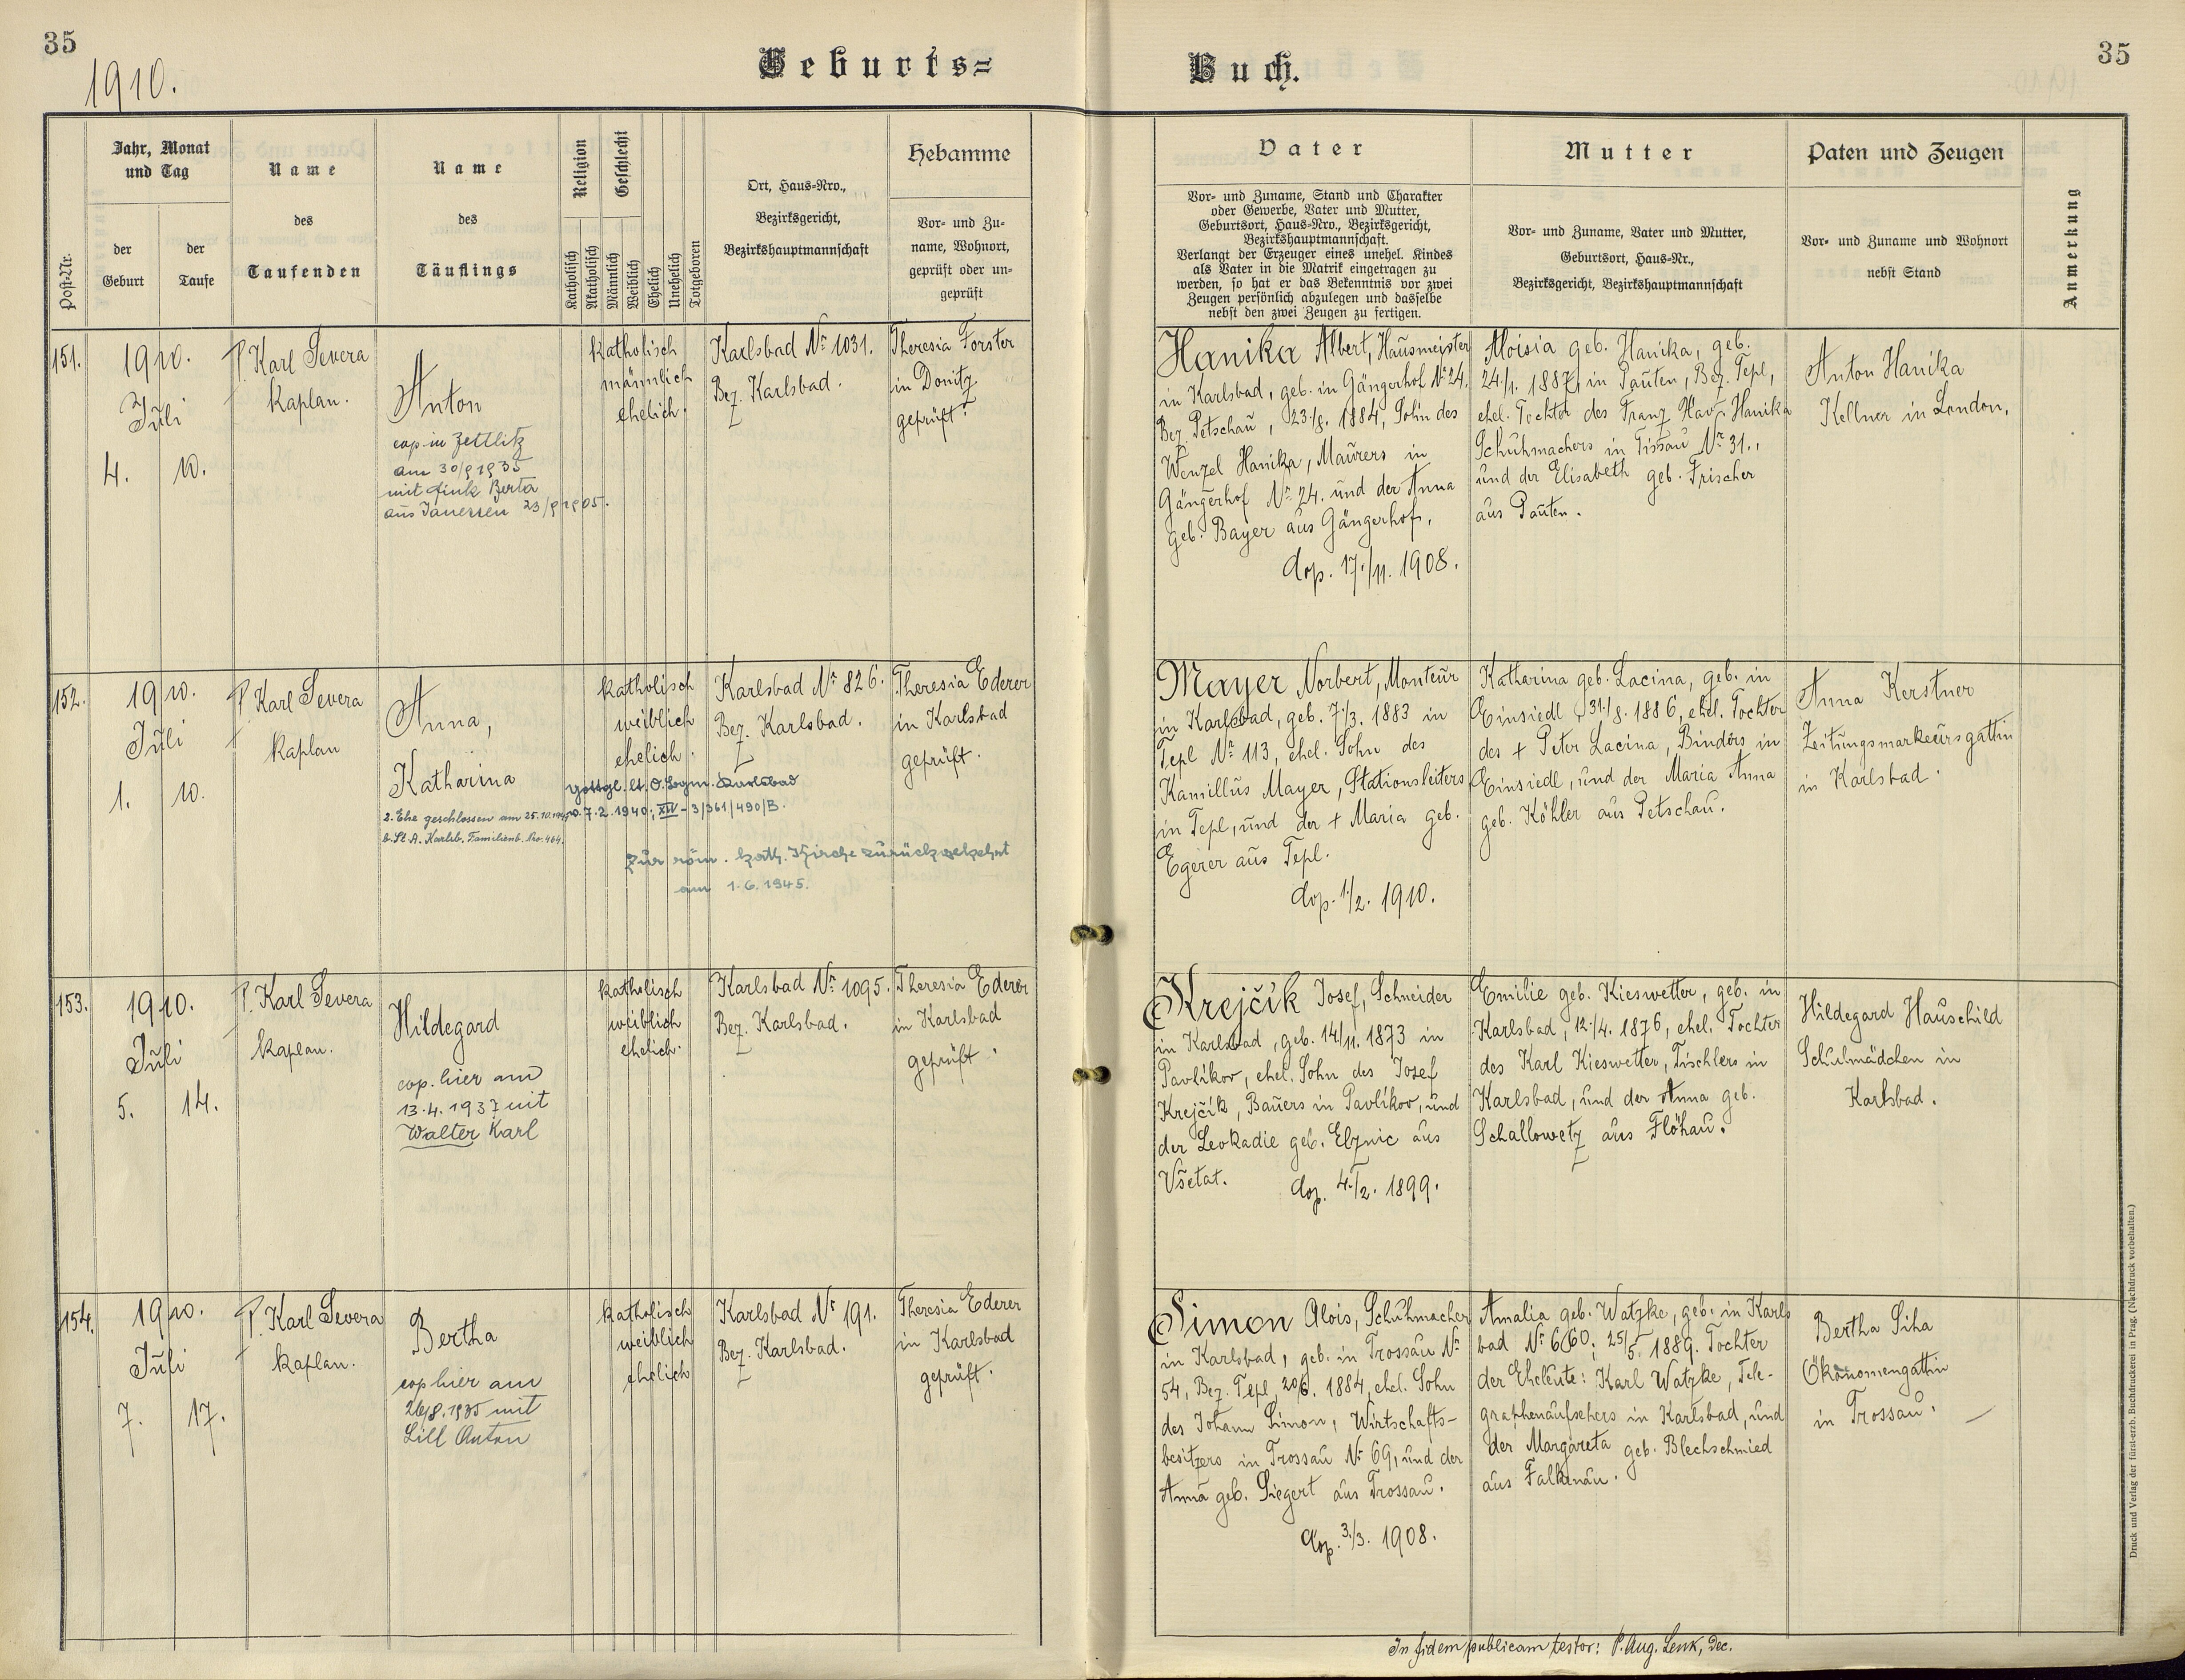 35
1910.
Geburts=
Buch.
35
Post-Nr.
Jahr, Monat
und Tag
der
Geburt
der
Taufe
Name
des
Taufenden
Name
des
Täuflings
Religion
Katholisch
Akatholisch
Geschlecht
Männlich
Weiblich
Ehelich
Unehelich
Totgeboren
Ort, Haus-Nro.,
Bezirksgericht,
Bezirkshauptmannschaft
Hebamme
Vor- und Zu-
name, Wohnort,
geprüft oder un-
geprüft
Vater
Vor- und Zuname, Stand und Charakter
oder Gewerbe, Vater und Mutter,
Geburtsort, Haus-Nro., Bezirksgericht,
Bezirkshauptmannschaft.
Verlangt der Erzeuger eines unehel. Kindes
als Vater in die Matrik eingetragen zu
werden, so hat er das Bekenntnis vor zwei
Zeugen persönlich abzulegen und dasselbe
nebst den zwei Zeugen zu fertigen.
Mutter
Vor- und Zuname, Vater und Mutter,
Geburtsort, Haus-Nr.,
Bezirksgericht, Bezirkshauptmannschaft
Paten und Zeugen
Vor- und Zuname und Wohnort
nebst Stand
Anmerkung
151.
1910.
Juli
4. 10.
P. Karl Severa
Kaplan.
Anton
cop. in Zettlitz
am 30/9 1935
mit Fink Berta
aus Janessen 23/9 1905.
katholisch
männlich
ehelich.
Karlsbad Nr. 1031.
Bez. Karlsbad.
Theresia Forster
in Donitz
geprüft.
Hanika Albert, Hausmeister
in Karlsbad, geb. in Gängerhof Nr. 24,
Bez. Petschau, 23./8. 1884, Sohn des
Wenzel Hanika, Maurers in
Gängerhof Nr. 24. und der Anna
geb. Bayer aus Gängerhof.
Cop. 17./11. 1908.
Aloisia geb. Hanika, geb.
24./1. 1887, in Pauten, Bez. Tepl,
ehel. Tochter des Franz Xav. Hanika
Schuhmachers in Tissau Nr. 31.,
und der Elisabeth geb. Frischer
aus Pauten.
Anton Hanika
Kellner in London.
152.
1910.
Juli
1. 10.
P. Karl Severa
Kaplan
Anna,
Katharina
2. Ehe geschlossen am 25.10.
b. St. A. Karlsb. Familienb. Nro. 464.
katholisch
weiblich
ehelich.
gottgl. lt. O. Bgm. Karlsbad
v. 7.2.1940; XIV-3/361/490/B.
Zur röm. kath. Kirche zurückgekehrt
am 1.6.1945.
Karlsbad Nr. 826.
Bez. Karlsbad.
Theresia Ederer
in Karlsbad
geprüft.
Mayer Norbert, Monteur
in Karlsbad, geb. 7./3. 1883 in
Tepl Nr. 113, ehel. Sohn des
Kamillus Mayer, Stationsleiters
in Tepl, und der + Maria geb.
Egerer aus Tepl.
Cop. 1./2. 1910.
Katharina geb. Lacina, geb. in
Einsiedl, 31./8. 1886, ehel. Tochter
des + Peter Lacina, Binders in
Einsiedl, und der Maria Anna
geb. Köhler aus Petschau.
Anna Kerstner
Zeitungsmarkeursgattin
in Karlsbad.
153.
1910.
Juli
5. 14.
P. Karl Severa
Kaplan.
Hildegard
cop. hier am
13.4.1937 mit
Walter Karl
katholisch
weiblich
ehelich.
Karlsbad Nr. 1095.
Bez. Karlsbad.
Theresia Ederer
in Karlsbad
geprüft.
Krejčík Josef, Schneider
in Karlsbad, geb. 14/11. 1873 in
Pavlíkov, ehel. Sohn des Josef
Krejčík, Bauers in Pavlíkov, und
der Leokadie geb. Elznic aus
Všetat.
Cop. 4./2. 1899.
Emilie geb. Kieswetter, geb. in
Karlsbad, 12./4. 1876, ehel. Tochter
des Karl Kieswetter, Tischlers in
Karlsbad, und der Anna geb.
Schallowetz aus Flöhau.
Hildegard Hauschild
Schulmädchen in
Karlsbad.
154.
1910.
Juli
7. 17.
P. Karl Severa
Kaplan.
Bertha
cop hier am
26/8. 1935 mit
Lill Anton
katholisch
weiblich
ehelich
Karlsbad Nr. 191.
Bez. Karlsbad.
Theresia Ederer
in Karlsbad
geprüft.
Simon Alois, Schuhmacher
in Karlsbad, geb. in Trossau Nr.
54, Bez. Tepl, 20/6. 1884, ehel. Sohn
des Johann Simon, Wirtschafts-
besitzers in Trossau Nr. 69, und der
Anna geb. Siegert aus Trossau.
Cop. 3./3. 1908.
Amalia geb. Watzke, geb. in Karls
bad Nr. 660; 25/5. 1889. Tochter
der Eheleute: Karl Watzke, Tele-
graphenaufsehers in Karlsbad, und
der Margareta geb. Blechschmied
aus Falkenau.
Bertha Siha
Ökonomengattin
in Trossau.
In fidem publicam testor: P. Aug. Lenk, Dec.
Druck und Verlag der fürst-erzb. Buchdruckerei in Prag. (Nachdruck vorbehalten.)